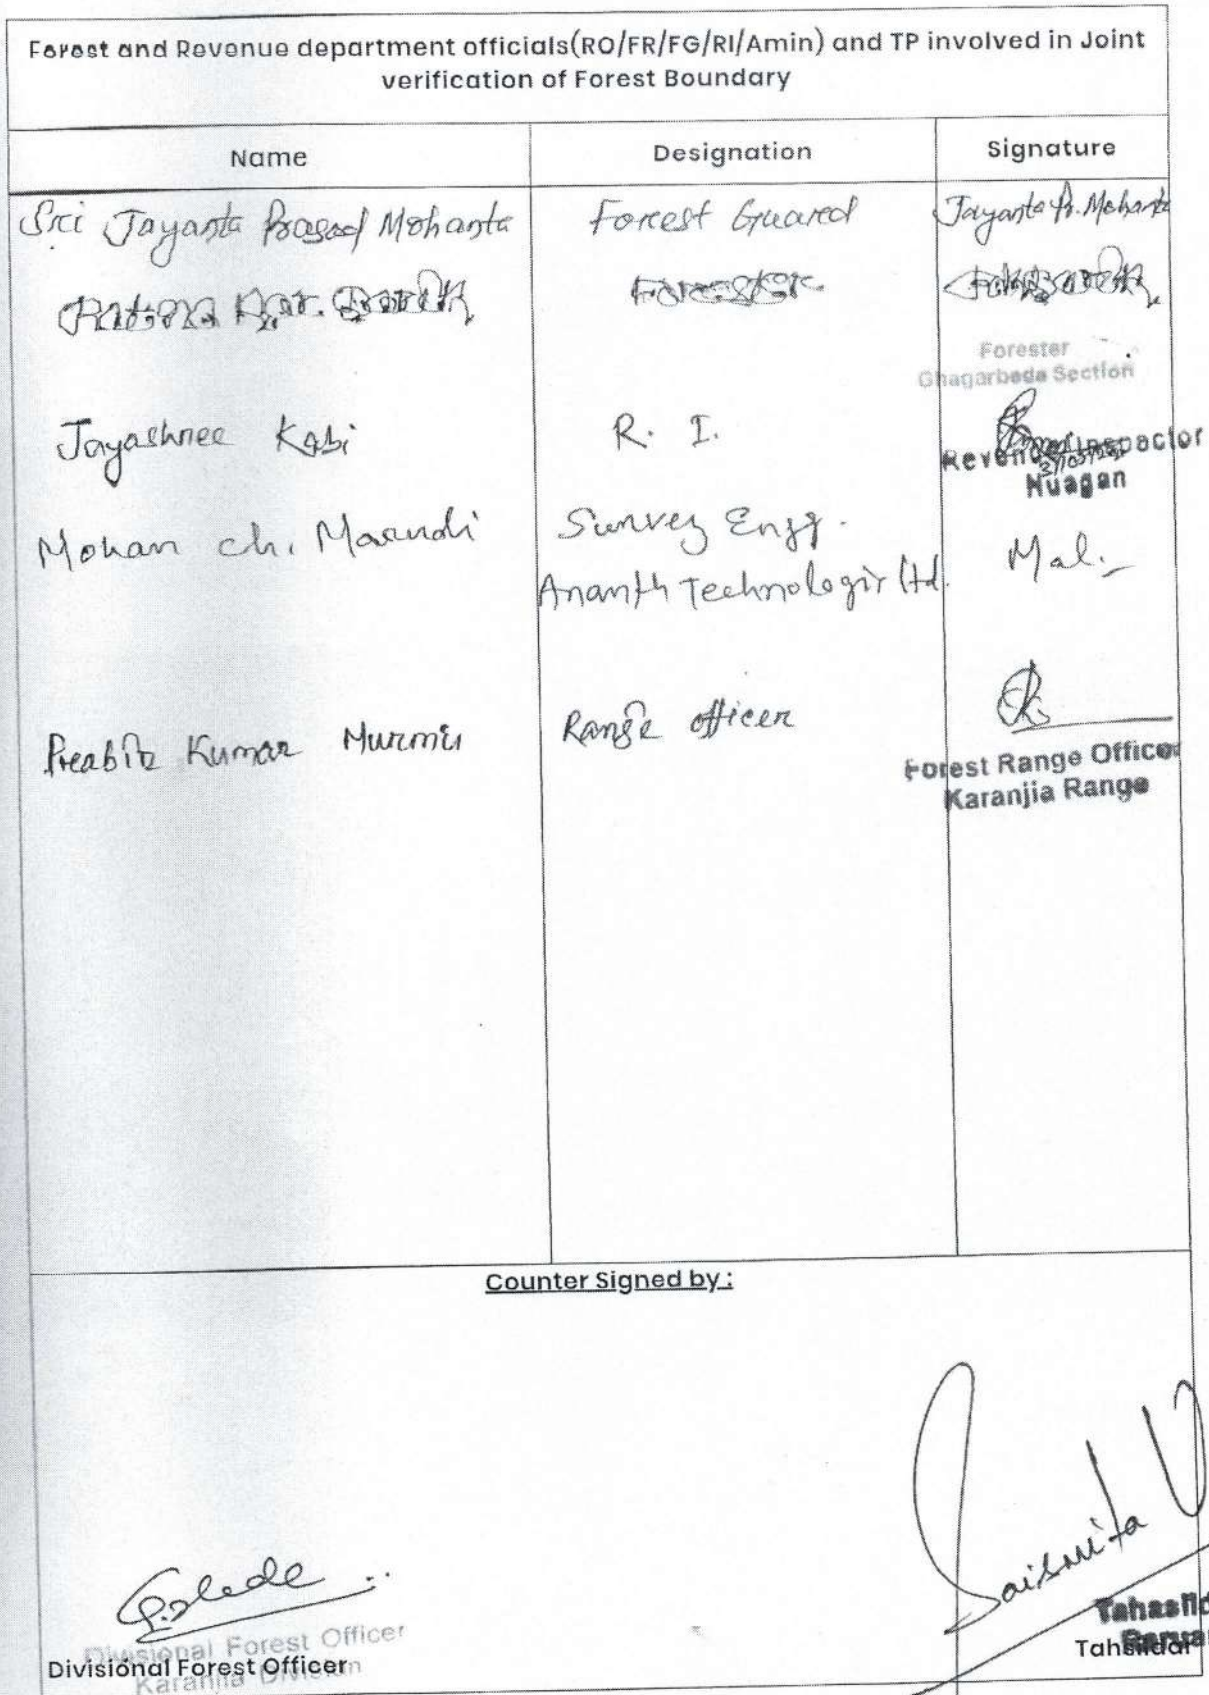 Forest and Revenue department officials(RO/FR/FG/RI/Amin) and TP involved in Joint
verification of Forest Boundary
Name Designation Signature
Sri Jayanta Prasad Mohanta Forest Guard Jayanta Pr. Mohanta
Forester
Forester
Ghagarbeda Section
Jayashree Kabi R. I.
Revenue Inspector
Nuagan
Mohan ch. Marndi Survey Engg.
Ananth Technologir Ltd. Mal.
Prabir Kumar Murmu Range officer
Forest Range Officer
Karanjia Range
Counter Signed by :
Saismita
Divisional Forest Officer
Karanjia Division
Divisional Forest Officer
Tahasild
Tahsildar